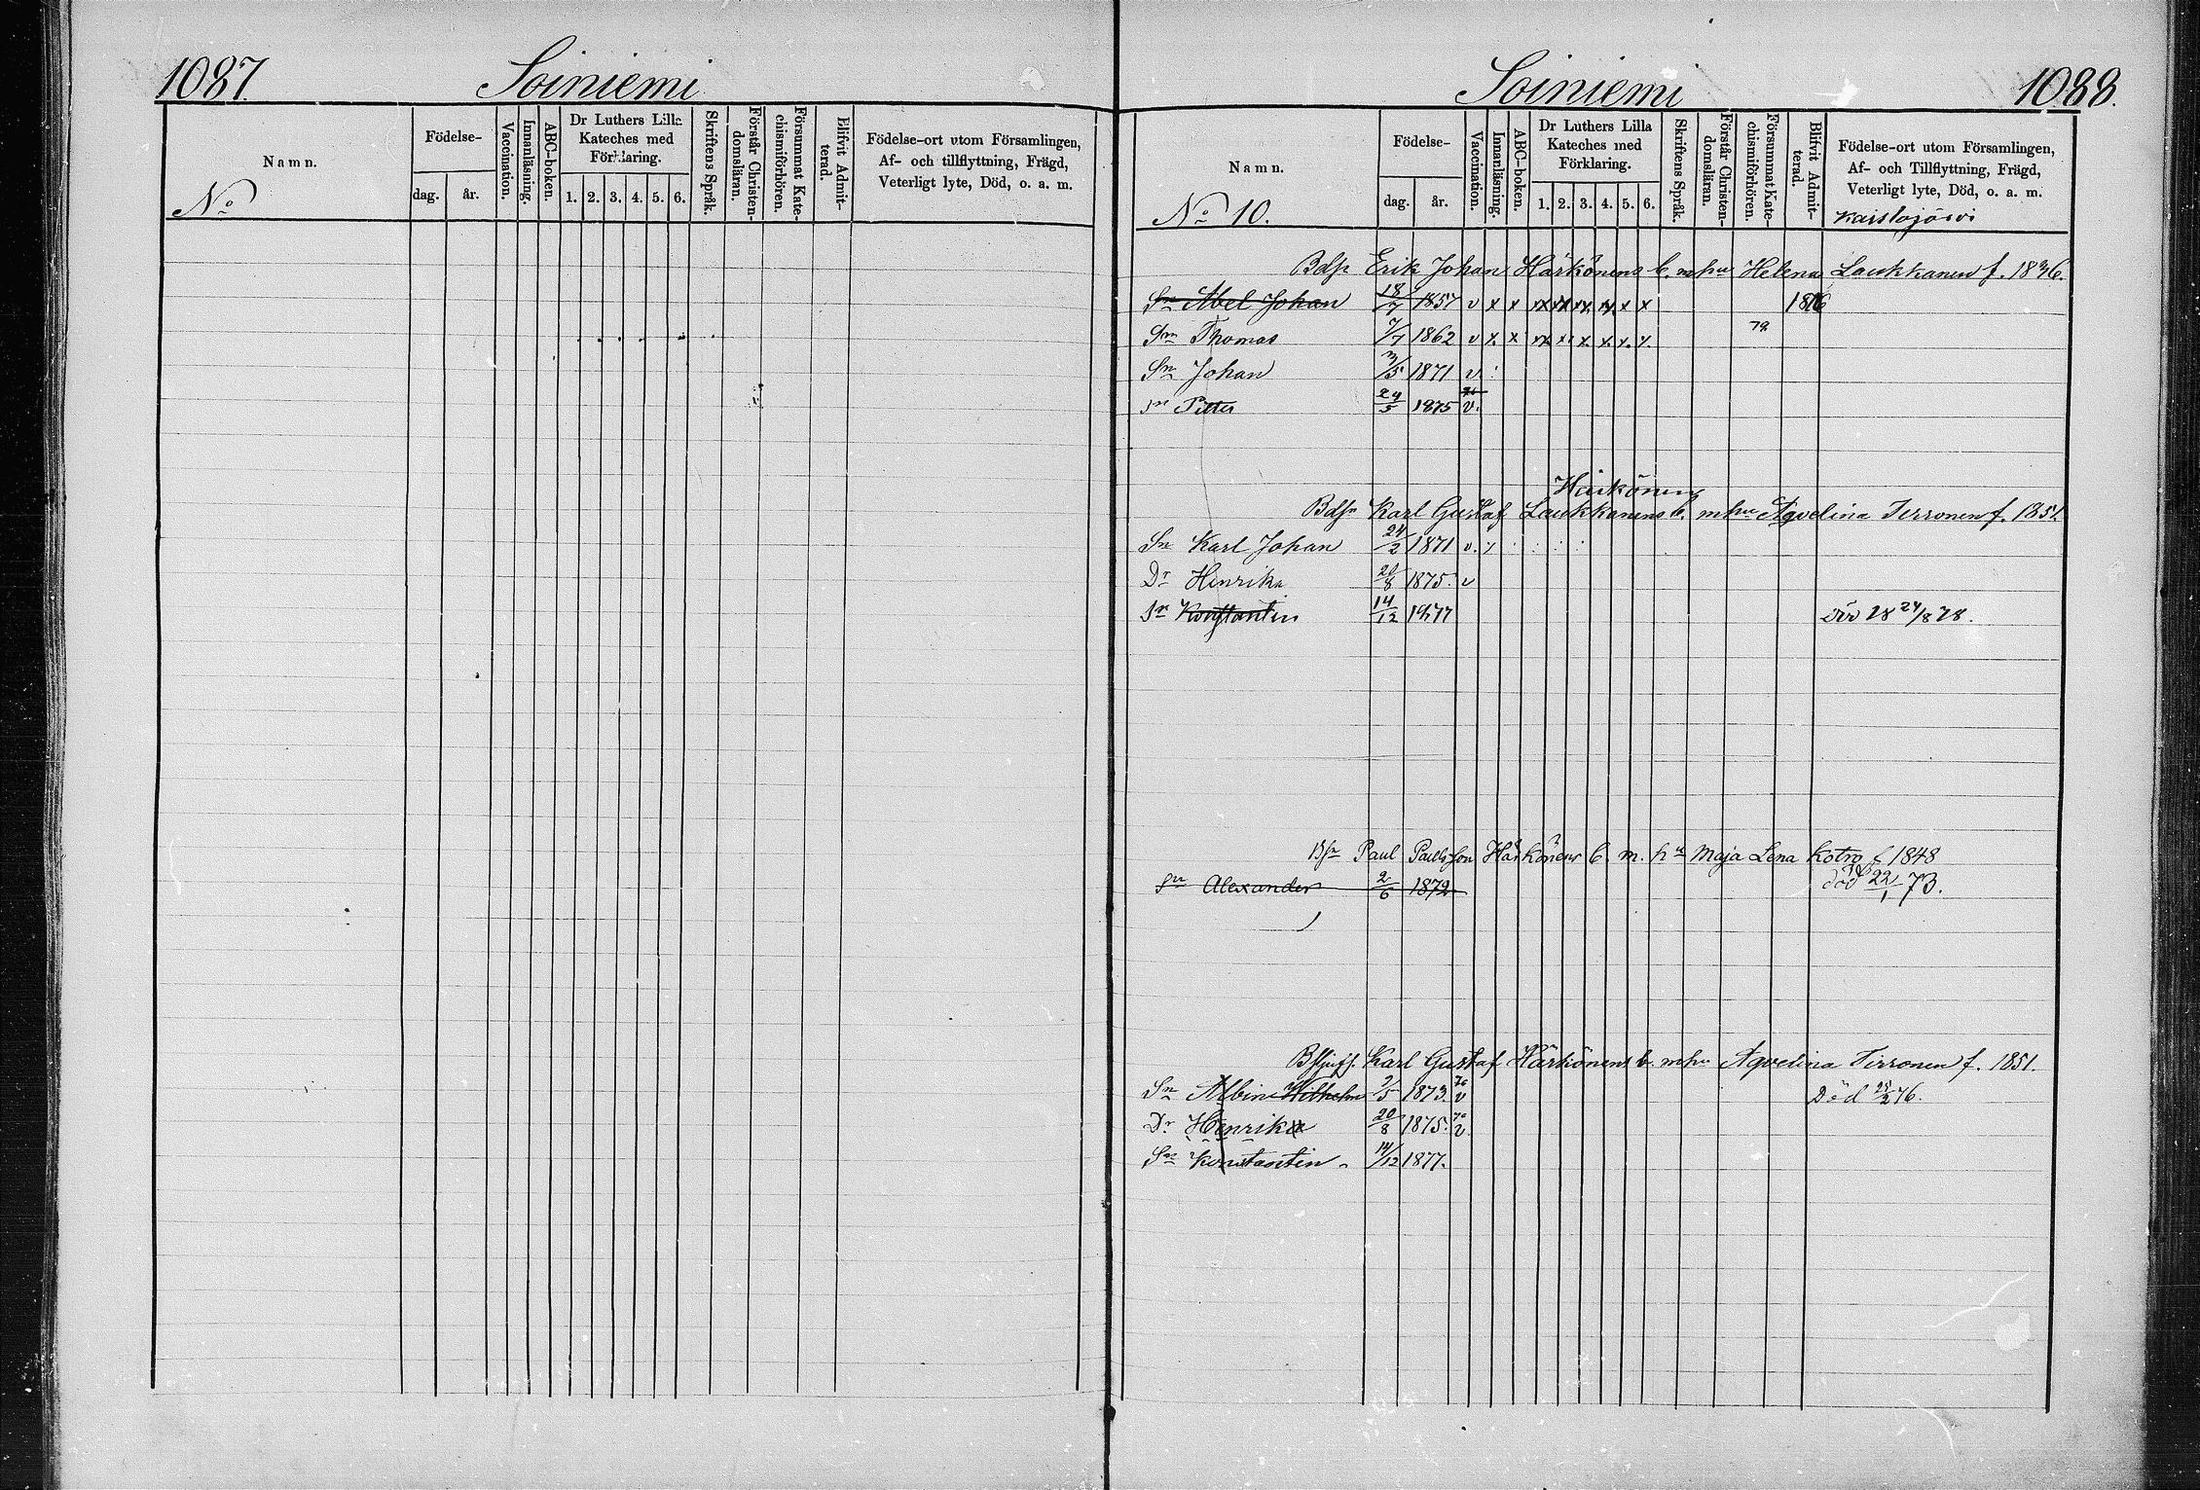 1087.
Soiniemi
Namn.
No
Födelse-
dag.
år.
Vaccination.
Innanläsning.
ABC-boken.
Dr Luthers Lilla
Kateches med
Förklaring.
1. 2. 3. 4. 5. 6.
Skriftens Språk.
Förstår Christen-
domsläran.
Försummat Kate-
chismiförhören.
Blifvit Admit-
terad.
Födelse-ort utom Församlingen,
Af- och tillflyttning, Frägd,
Veterligt lyte, Död, o. a. m.
Soiniemi
1088.
Namn.
No 10.
Födelse-
dag.
år.
Vaccination.
Innanläsning.
ABC-boken.
Dr Luthers Lilla
Kateches med
Förklaring.
1. 2. 3. 4. 5. 6.
Skriftens Språk.
Förstår Christen-
domsläran.
Försummat Kate-
chismiförhören.
Blifvit Admit-
terad.
Födelse-ort utom Församlingen,
Af- och Tillflyttning, Frägd,
Veterligt lyte, Död, o. a. m.
Erik Johan Härkönens b. m hu Helena Laukkanen f. 1836.
Sn Abel Johan 18/7 1857 v x x xx xx xx x x x 1876
Sn Thomas 7/7 1862 v x x xx x x x x x 79
Sn Johan 1871 v
Sn Petter 29/5 1875 v.
Härkönen
Karl Gustaf Laukkanens b. m hu Agvelina Tirronen f. 1851.
Sn Karl Johan 24/2 1871 v.
Dr Henrika 20/8 1875. v
Sn Konstantin 14/12 1877 24/8 78.
Paul Paulsson Härkönens b. m. hu Maja Lena Kotro f 1848
Sn Alexander 2/6 1872 död 22/1 73.
Karl Gustaf Härkönens b. m hu Agvelina Tirronen f. 1851.
Sn Albin Wilhelm 1873. 76 v Död 76.
Dr Henrika 20/8 1875. 76 v
Sn Konstantin 14/12 1877.